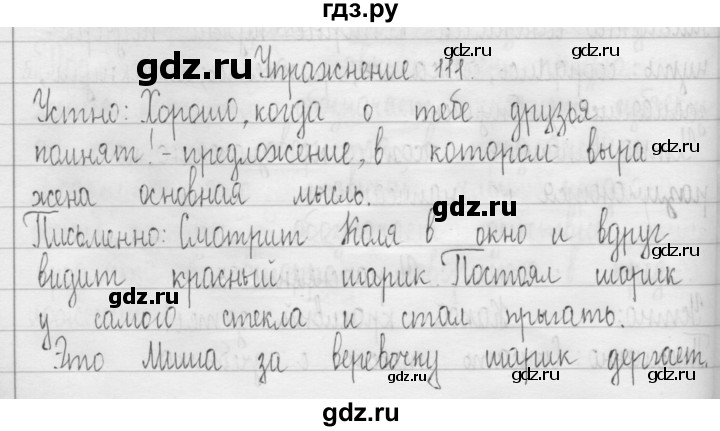 гдз.ру
gdz.ru
gdz.ru
Упражнение 111.
gdz.ru
Устно: Хорошо, когда о тебе друзья
помнят! - предложение, в котором выра
gdz.ru
жена основная мысль.
gdz.ru
gdz.ru
Письменно: Смотрит Коля в окно и вдруг
видит красный шарик Постоял шарик
gdz.ru
gdz.ru
у самого стекла и стал прыгать.
Это Миша за веревочку шарик дергает.
gdz.ru
gdz.ru
gdz.ru